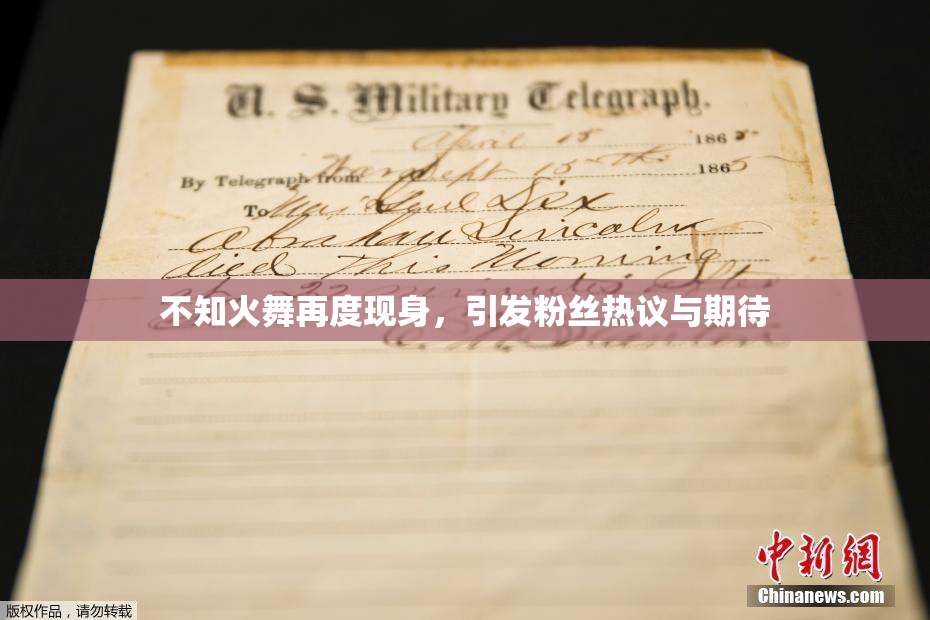 U. S. Military Telegraph.
April 15 1865
By Telegraph from War Dept 15th 1865
To Maj Genl Dix
Abraham Lincoln
died This Morning
at 22 minutes after
不知火舞再度现身，引发粉丝热议与期待
E. M. Stanton
中新网
Chinanews.com
版权作品，请勿转载